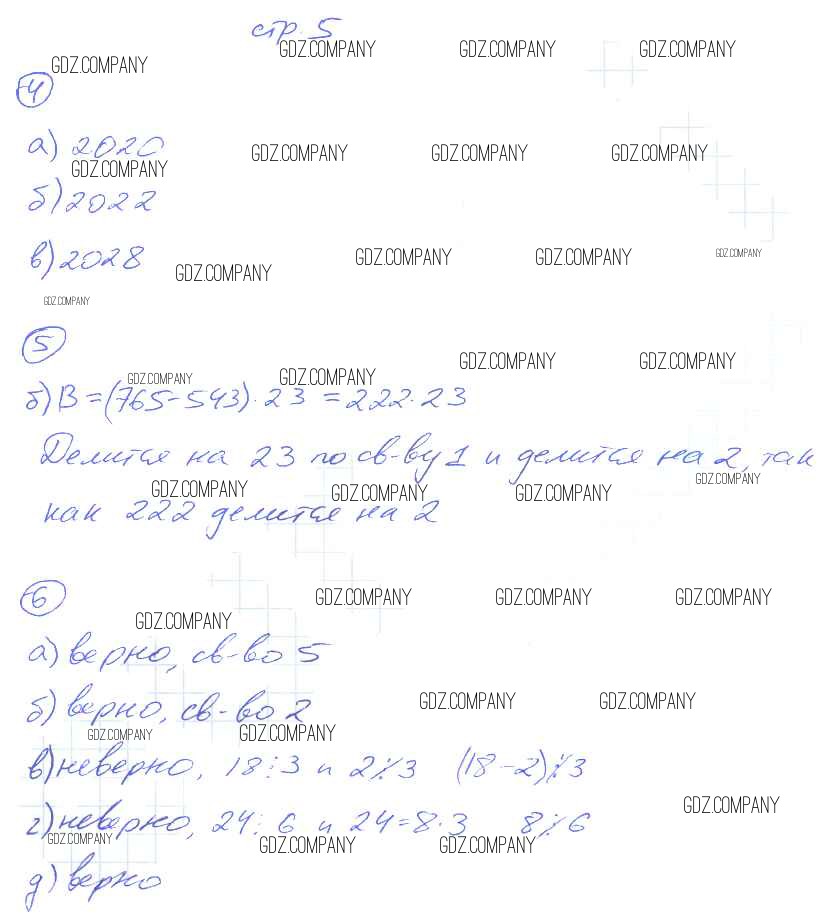 стр. 5
GDZ.COMPANY GDZ.COMPANY GDZ.COMPANY GDZ.COMPANY
4
а) 2020
GDZ.COMPANY GDZ.COMPANY GDZ.COMPANY GDZ.COMPANY
б) 2022
в) 2028
GDZ.COMPANY GDZ.COMPANY GDZ.COMPANY GDZ.COMPANY
GDZ.COMPANY
5
GDZ.COMPANY GDZ.COMPANY GDZ.COMPANY GDZ.COMPANY
б) В = (765-543)·23 = 222·23
Делится на 23 по св-ву 1 и делится на 2, так
GDZ.COMPANY GDZ.COMPANY GDZ.COMPANY GDZ.COMPANY
как 222 делится на 2
6
GDZ.COMPANY GDZ.COMPANY GDZ.COMPANY GDZ.COMPANY
а) верно, св-во 5
б) верно, св-во 2
GDZ.COMPANY GDZ.COMPANY GDZ.COMPANY GDZ.COMPANY
в) неверно, 18⋮3 и 2⋮̸3 (18-2)⋮̸3
г) неверно, 24⋮6 и 24=8·3 8⋮̸6
GDZ.COMPANY GDZ.COMPANY GDZ.COMPANY GDZ.COMPANY
д) верно